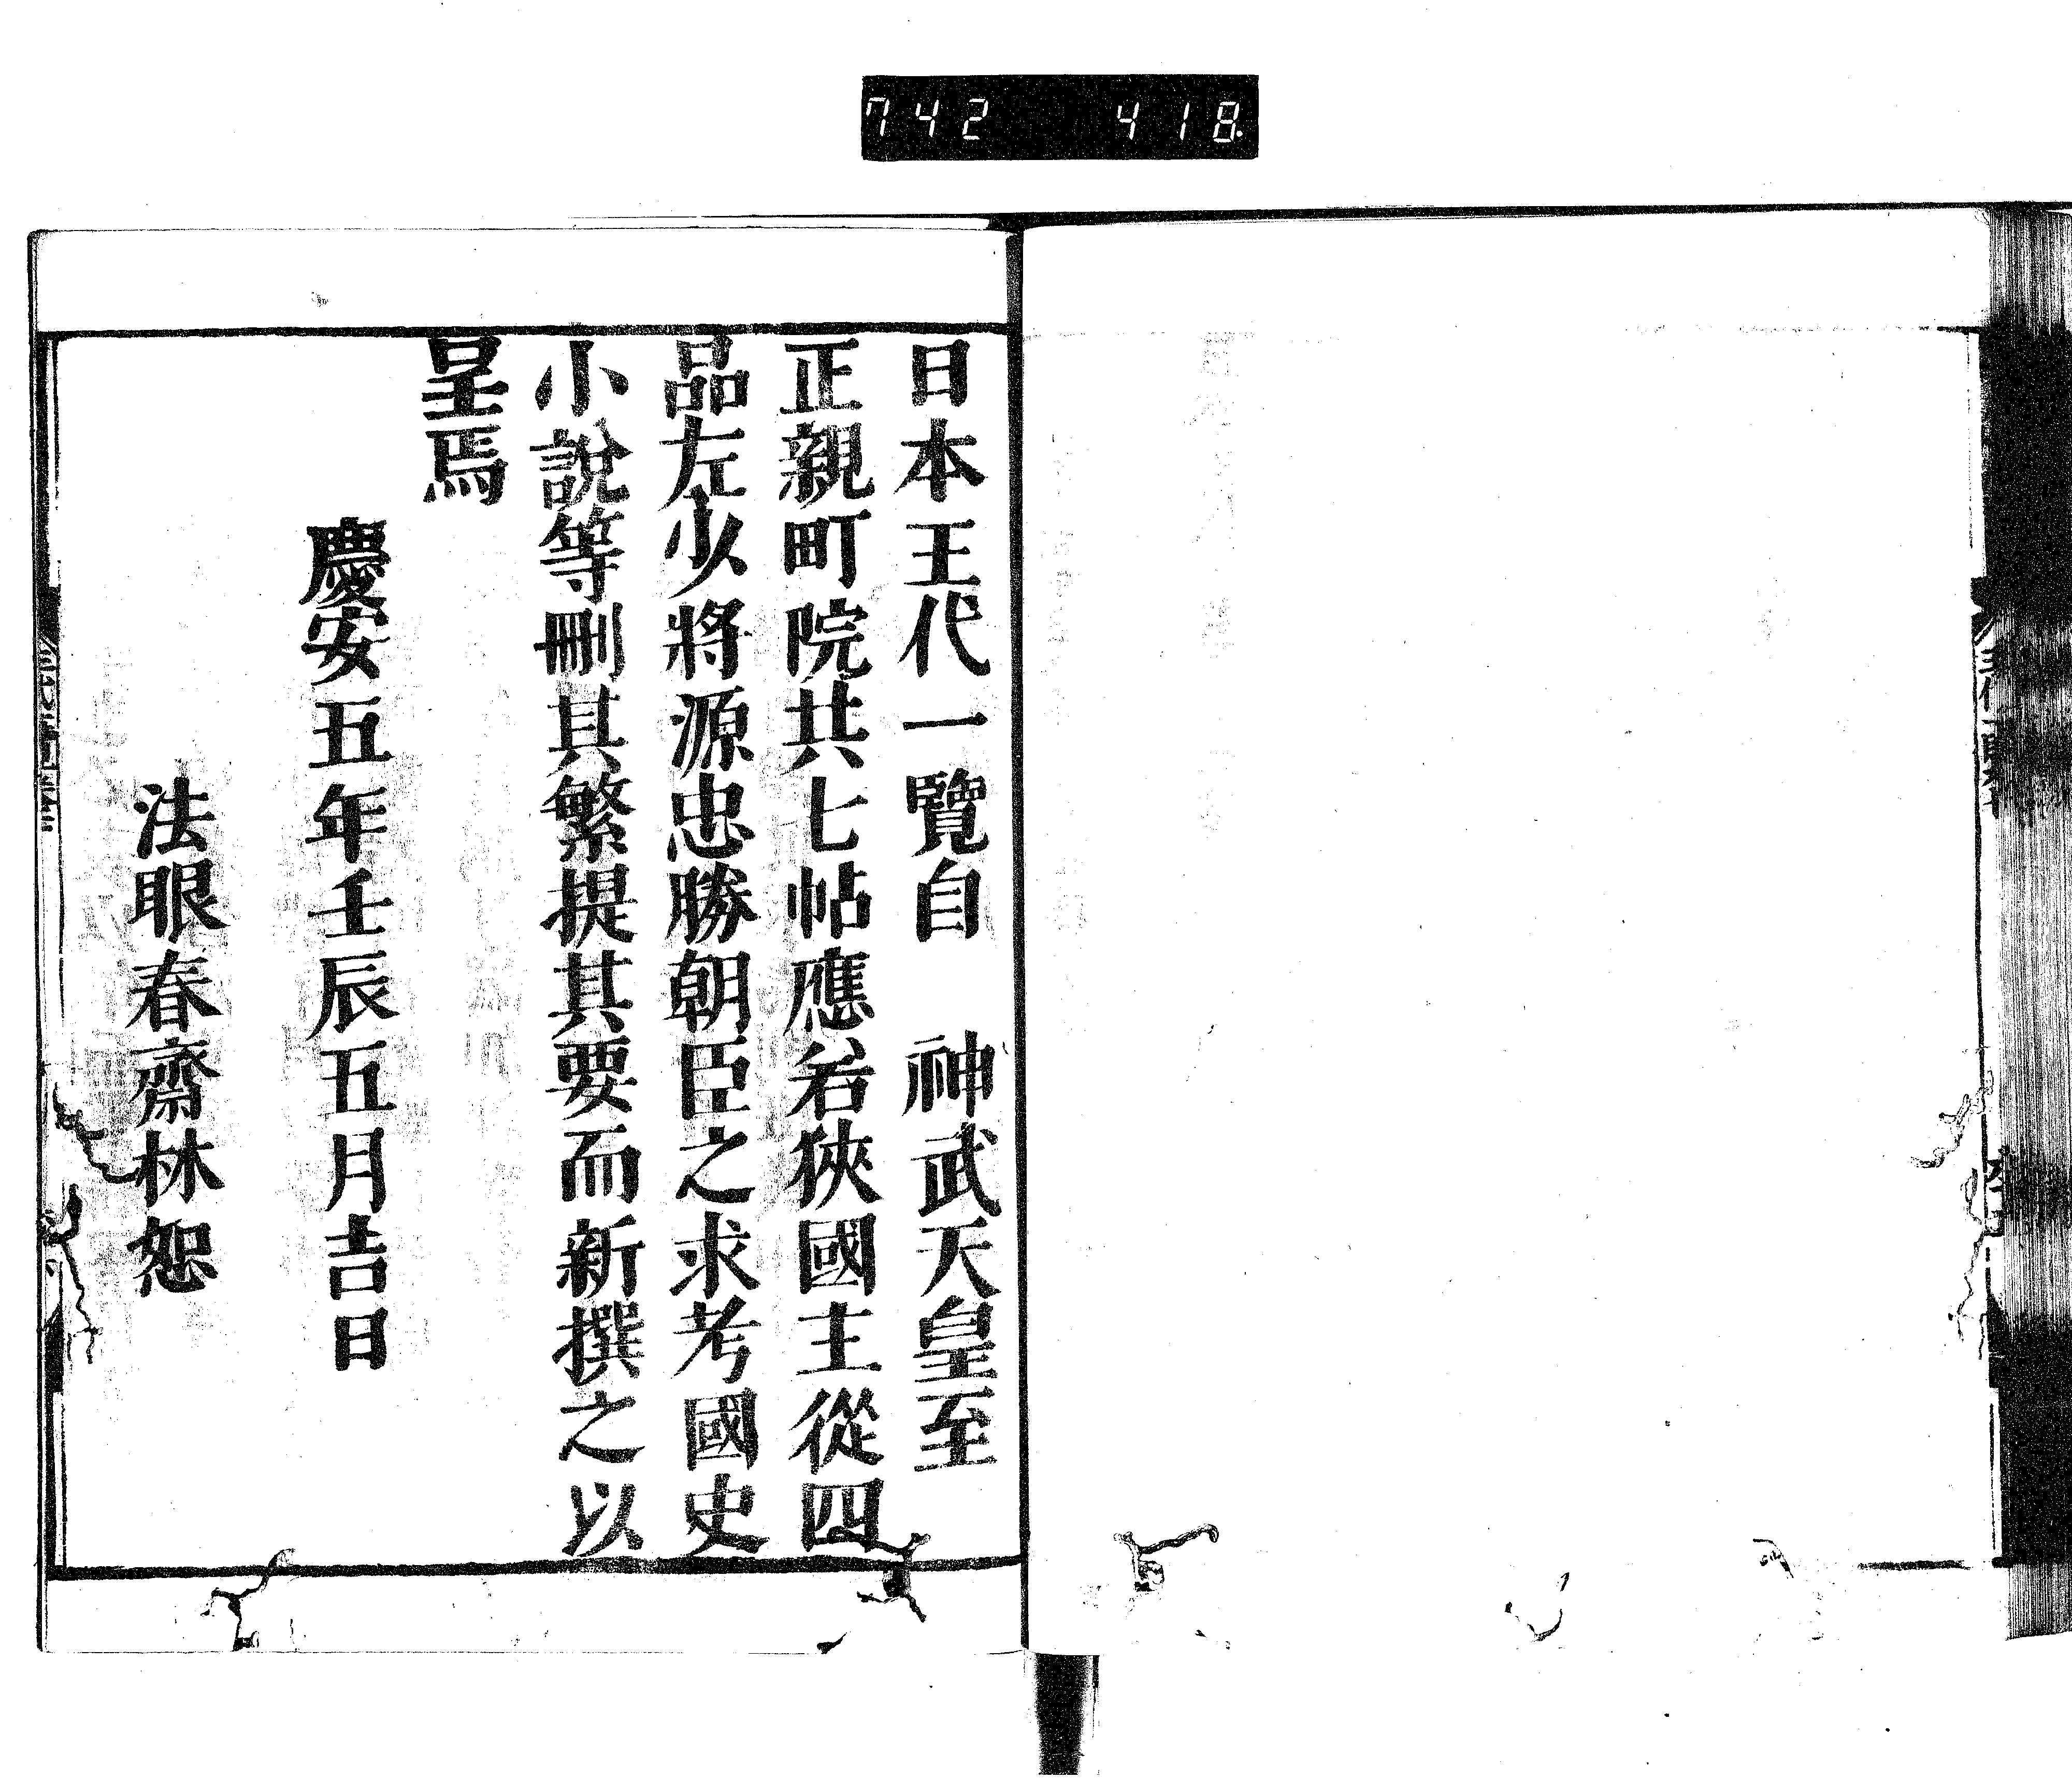 742 418
日本王代一覽自　神武天皇至
正親町院共七帖應若狹國主從四
品左少將源忠勝朝臣之求考國史
小說等刪其繁提其要而新撰之以
呈焉
慶安五年壬辰五月吉日
法眼春齋林恕